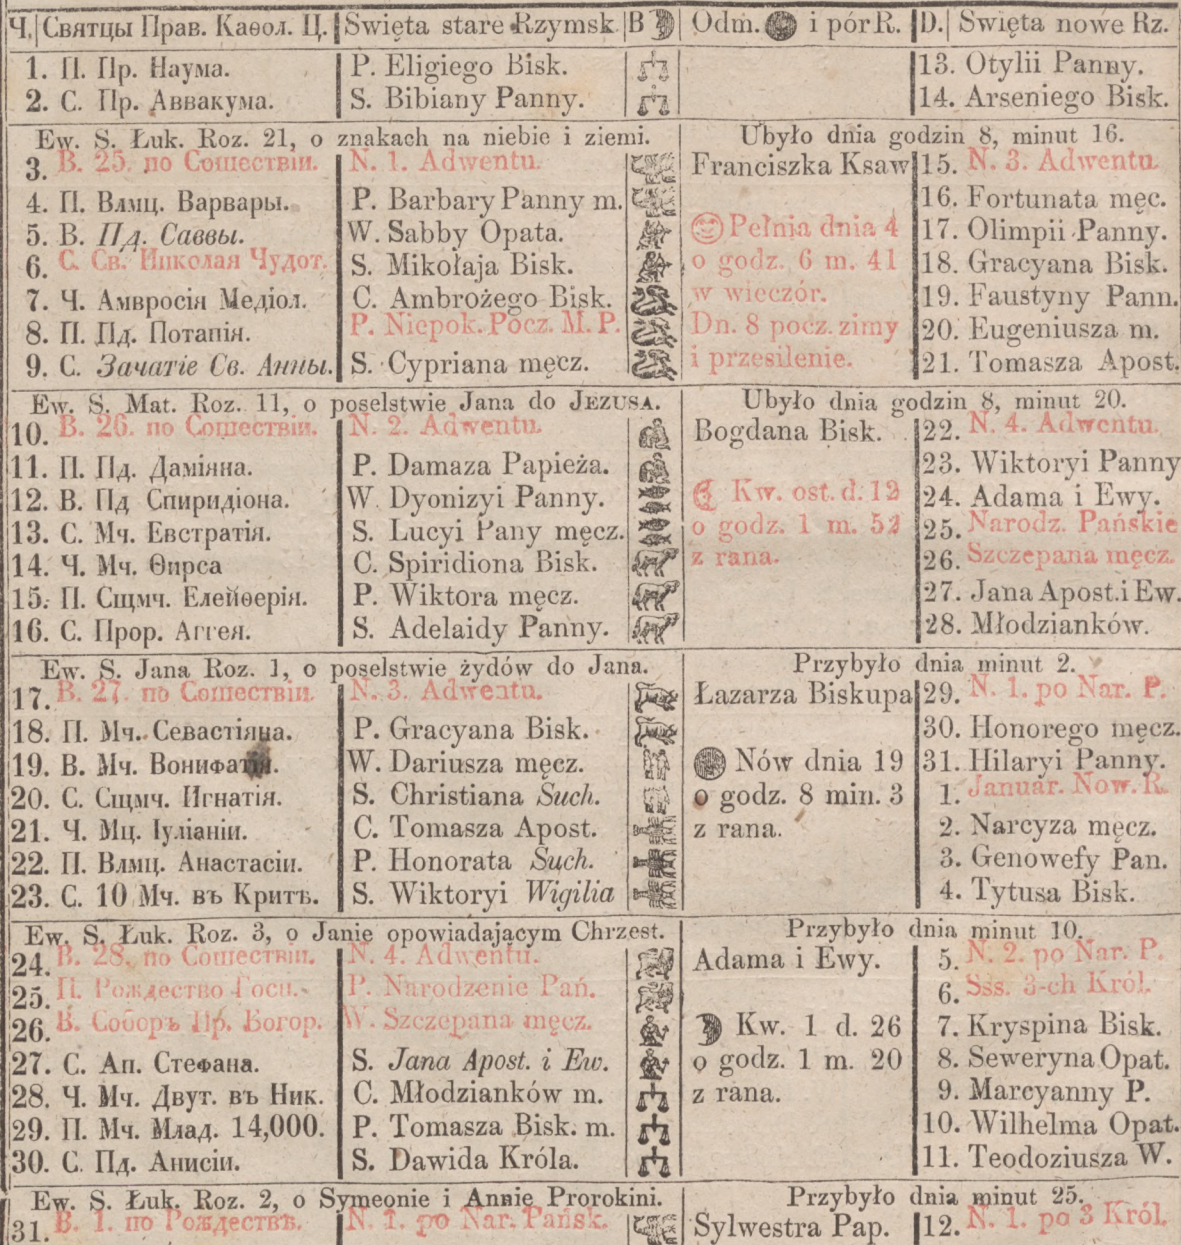 Ч. Святцы Прав. Каѳол. Ц. Święta stare Rzymsk. B Odm. i pór R. D. Święta nowe Rz.
1. П. Пр. Наума. P. Eligiego Bisk. 13. Otylii Panny.
2. С. Пр. Аввакума. S. Bibiany Panny. 14. Arseniego Bisk.
Ew. S. Łuk. Roz. 21, o znakach na niebie i ziemi. Ubyło dnia godzin 8, minut 16.
3. В. 25. по Сошествіи. N. 1. Adwentu. Franciszka Ksaw 15. N. 3. Adwentu
4. П. Влмц. Варвары. P. Barbary Panny m. 16. Fortunata męc.
5. В. Пд. Саввы. W. Sabby Opata. Pełnia dnia 4 17. Olimpii Panny.
6. С. Св. Николая Чудот. S. Mikołaja Bisk. o godz. 6 m. 41 18. Gracyana Bisk.
7. Ч. Амвросія Медіол. C. Ambrożego Bisk. w wieczór. 19. Faustyny Pann.
8. П. Пд. Потапія. P. Niepok. Pocz. M. P. Dn. 8 pocz. zimy 20. Eugeniusza m.
9. С. Зачатіе Св. Анны. S. Cypriana męcz. i przesilenie. 21. Tomasza Apost.
Ew. S. Mat. Roz. 11, o poselstwie Jana do JEZUSA. Ubyło dnia godzin 8, minut 20.
10. В. 26. по Сошествіи. N. 2. Adwentu. Bogdana Bisk. 22. N. 4. Adwentu.
11. П. Пд. Даміяна. P. Damaza Papieża. 23. Wiktoryi Panny
12. В. Пд Спиридіона. W. Dyonizyi Panny. Kw. ost. d. 12 24. Adama i Ewy.
13. С. Мч. Евстратія. S. Lucyi Pany męcz. o godz. 1 m. 52 25. Narodz. Pańskie
14. Ч. Мч. Ѳирса C. Spiridiona Bisk. z rana. 26. Szczepana męcz.
15. П. Сщмч. Елейѳерія. P. Wiktora męcz. 27. Jana Apost. i Ew.
16. С. Прор. Аггея. S. Adelaidy Panny. 28. Młodzianków.
Ew. S. Jana Roz. 1, o poselstwie żydów do Jana. Przybyło dnia minut 2.
17. В. 27. по Сошествіи. N. 3. Adwentu. Łazarza Biskupa 29. N. 1. po Nar. P.
18. П. Мч. Севастіяна. P. Gracyana Bisk. 30. Honorego męcz.
19. В. Мч. Вонифатія. W. Dariusza męcz. Nów dnia 19 31. Hilaryi Panny.
20. С. Сщмч. Игнатія. S. Christiana Such. o godz. 8 min. 3 1. Januar. Now. R.
21. Ч. Мц. Іуліаніи. C. Tomasza Apost. z rana. 2. Narcyza męcz.
22. П. Влмц. Анастасіи. P. Honorata Such. 3. Genowefy Pan.
23. С. 10 Мч. въ Критѣ. S. Wiktoryi Wigilia 4. Tytusa Bisk.
Ew. S. Łuk. Roz. 3, o Janie opowiadającym Chrzest. Przybyło dnia minut 10.
24. В. 28. по Сошествіи. N. 4. Adwentu. Adama i Ewy. 5. N. 2. po Nar. P.
25. П. Рождество Госп. P. Narodzenie Pań. 6. Sss. 3-ch Król.
26. В. Соборъ Пр. Богор. W. Szczepana męcz. Kw. 1 d. 26 7. Kryspina Bisk.
27. С. Ап. Стефана. S. Jana Apost. i Ew. o godz. 1 m. 20 8. Seweryna Opat.
28. Ч. Мч. Двут. въ Ник. C. Młodzianków m. z rana. 9. Marcyanny P.
29. П. Мч. Млад. 14,000. P. Tomasza Bisk. m. 10. Wilhelma Opat.
30. С. Пд. Анисіи. S. Dawida Króla. 11. Teodoziusza W.
Ew. S. Łuk. Roz. 2, o Symeonie i Annie Prorokini. Przybyło dnia minut 25.
31. В. 1. по Рождествѣ. N. 1. po Nar. Pańsk. Sylwestra Pap. 12. N. 1. po 3 Król.